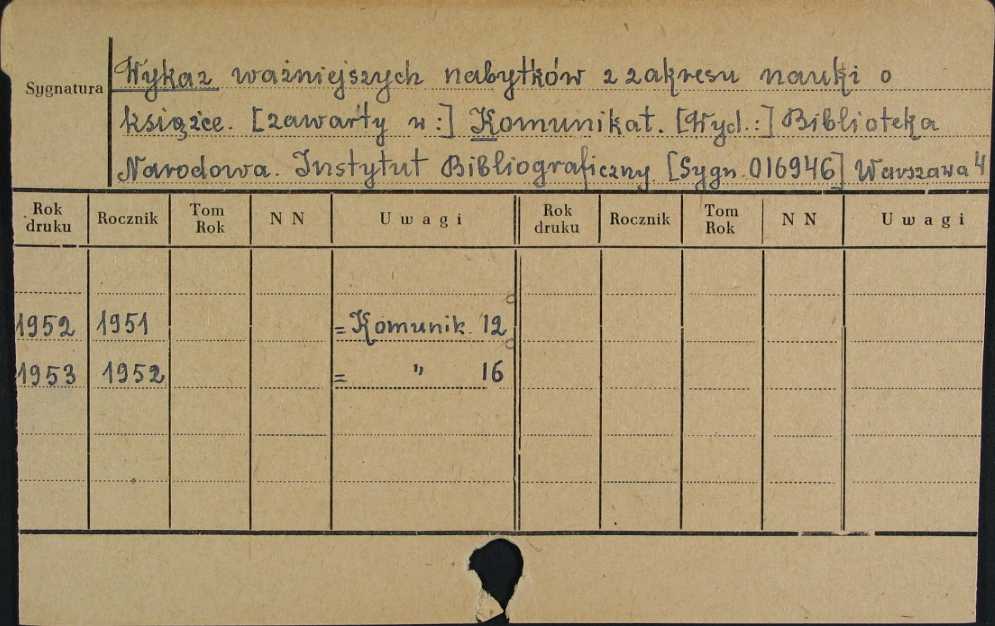 Sygnatura
Wykaz ważniejszych nabytków z zakresu nauki o
książce. [zawarty w:] Komunikat. [Wyd.:] Biblioteka
Narodowa. Instytut Bibliograficzny [Sygn. 016946] Warszawa 4
Rok druku Rocznik Tom Rok N N Uwagi Rok druku Rocznik Tom Rok N N Uwagi
1952 1951 =Komunik. 12
1953 1952 = " 16